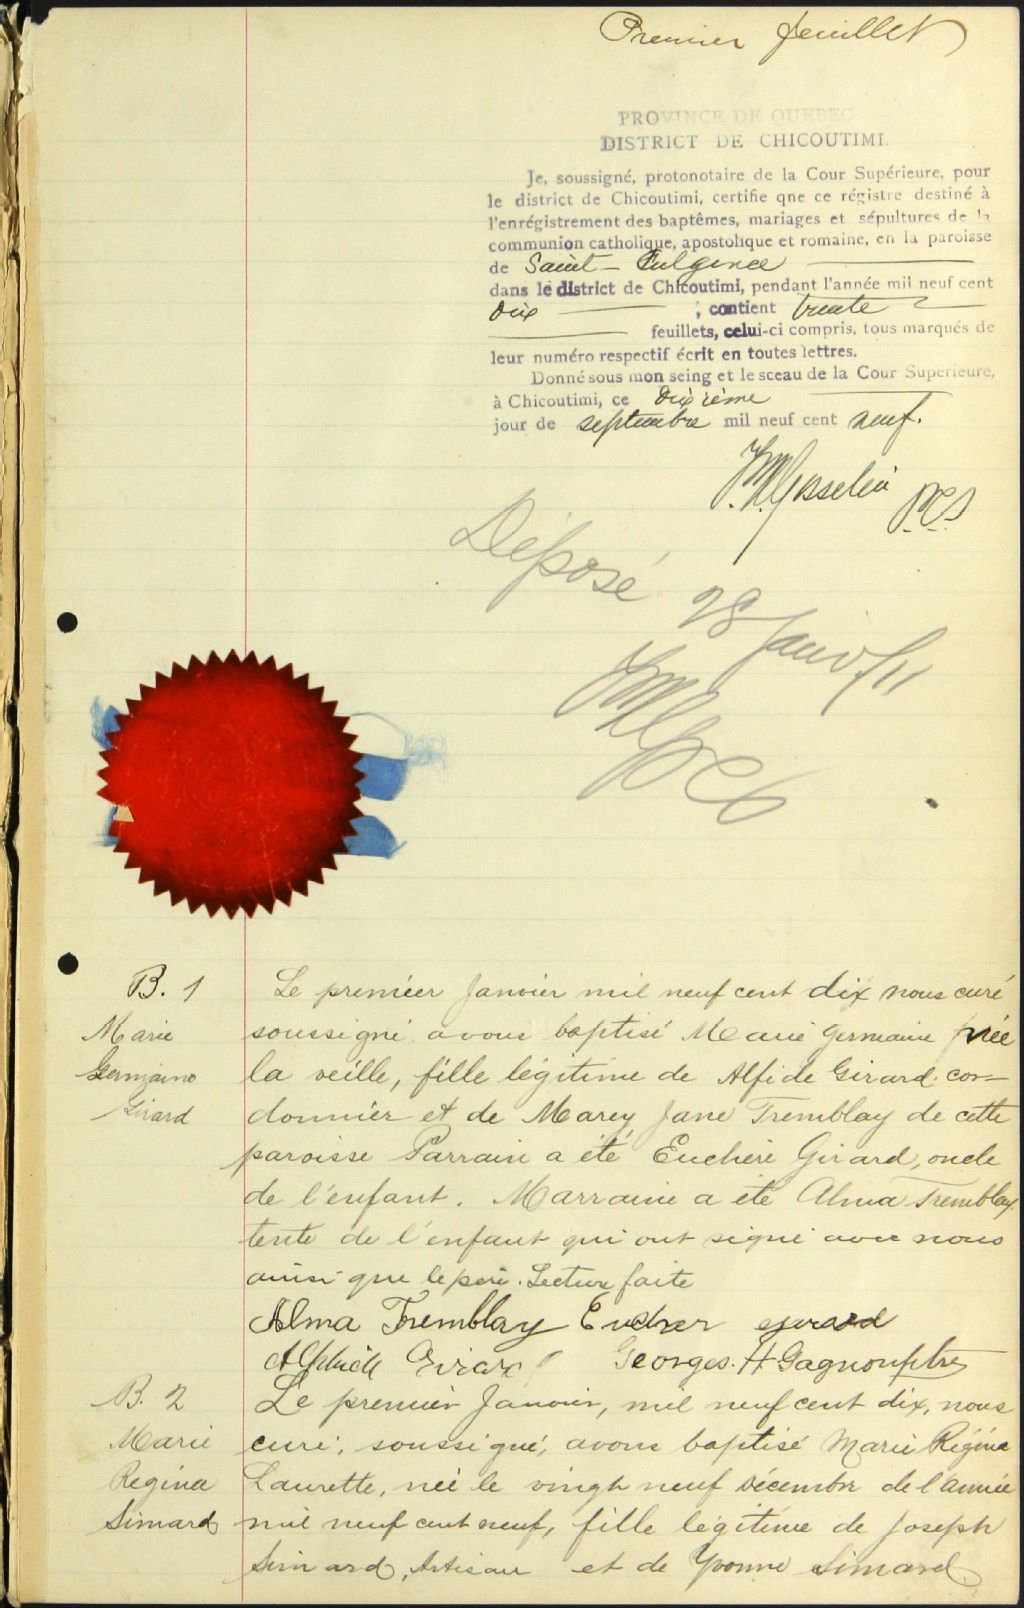 Premier feuillet
PROVINCE DE QUEBEC
DISTRICT DE CHICOUTIMI.
Je, soussigné, protonotaire de la Cour Supérieure, pour
le district de Chicoutimi, certifie qne ce régistre destiné à
l'enrégistrement des baptêmes, mariages et sépultures de la
communion catholique, apostolique et romaine, en la paroisse
de Saint-Fulgence
dans le district de Chicoutimi, pendant l'année mil neuf cent
dix ; contient trente
feuillets, celui-ci compris, tous marqués de
leur numéro respectif écrit en toutes lettres.
Donné sous mon seing et le sceau de la Cour Superieure,
à Chicoutimi, ce dixième
jour de septembre mil neuf cent neuf.
Gosselin P.C.S
Déposé 28 janv/11
B. 1
Marie
Germaine
Girard
Le premier Janvier mil neuf cent dix nous curé
soussigné avons baptisé Marie Germaine née
la veille, fille légitime de Alfide Girard cor-
donnier et de Marey Jane Tremblay de cette
paroisse Parrain a été Euchère Girard, oncle
de l'enfant. Marraine a été Alma Tremblay
tente de l'enfant qui ont signé avec nous
ainsi que le père. Lecture faite
Alma Tremblay Eucher girard
Girard Georges. H Gagnon ptre
B. 2
Marie
Regina
Simard
Le premier Janvier, mil neuf cent dix, nous
curé, soussigné, avons baptisé Marie Régina
Laurette, née le vingt neuf décembre de l'année
mil neuf cent neuf, fille légitime de Joseph
Simard, Artisan et de Yvonne Simard